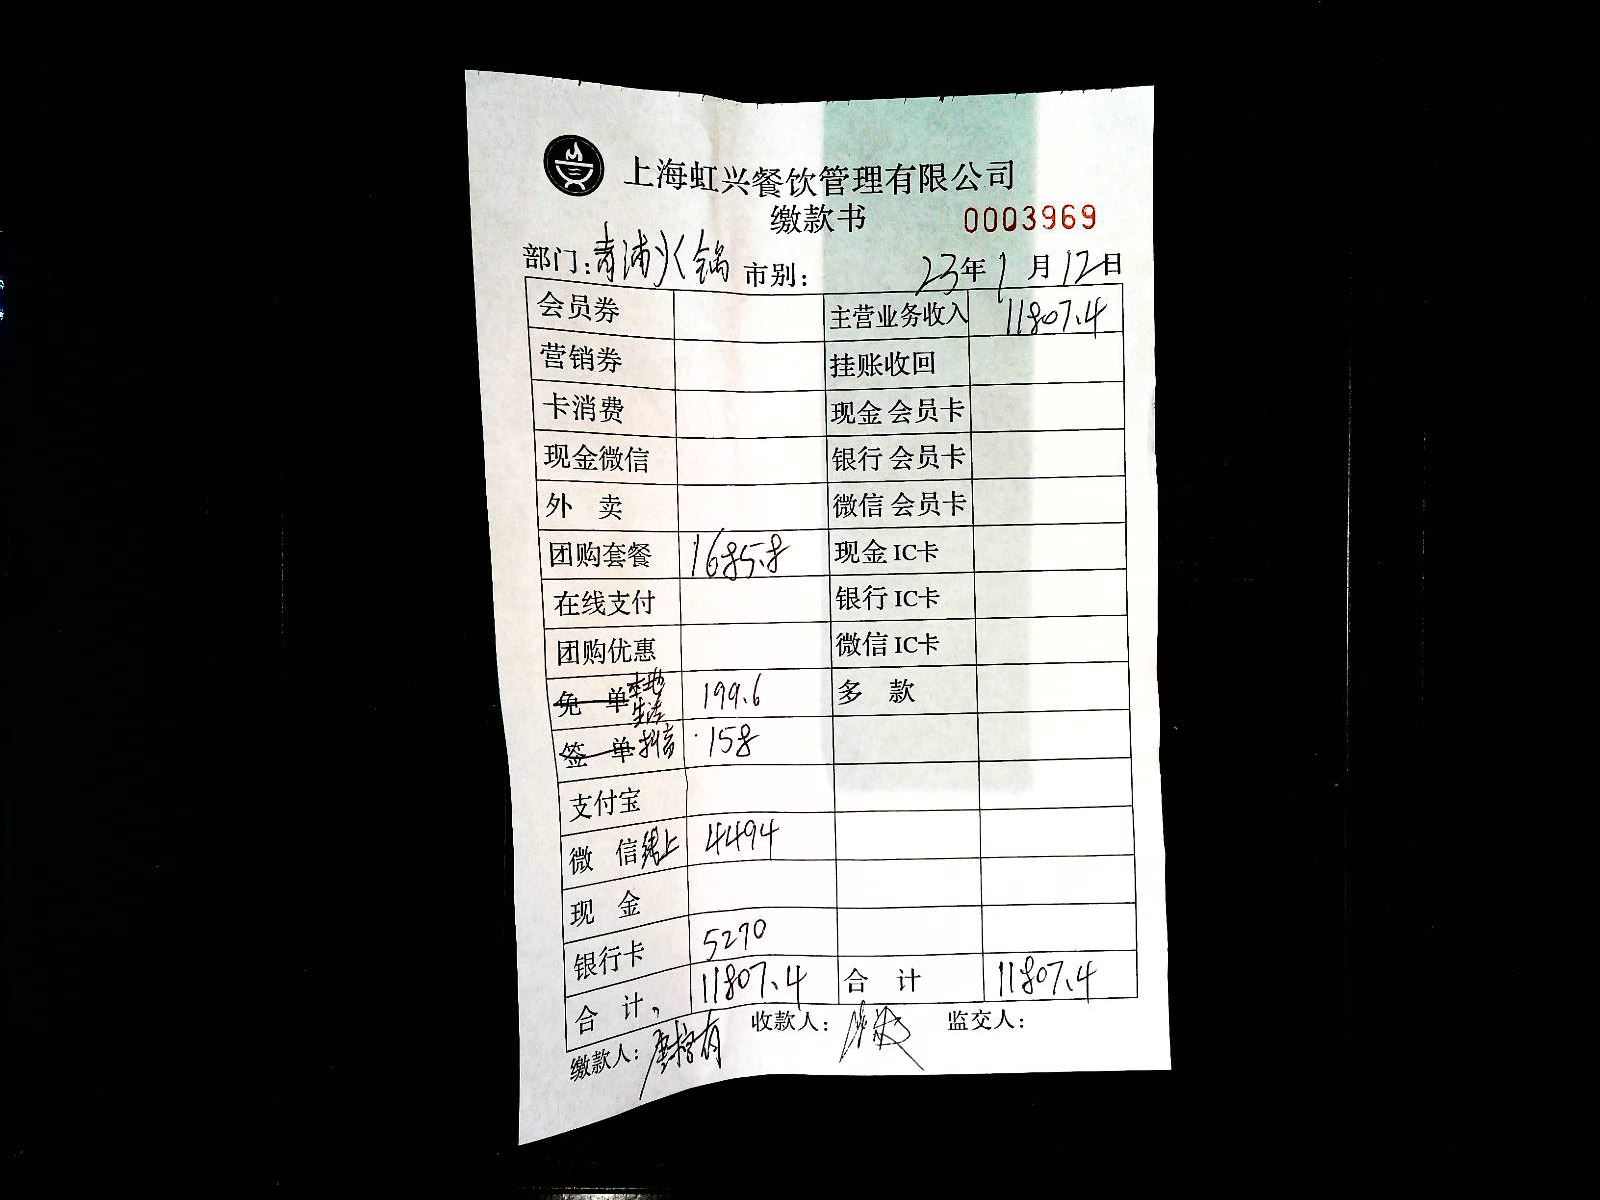 上海虹兴餐饮管理有限公司
缴款书 0003969
部门:青浦火锅 市别: 23年1月12日
会员券 主营业务收入 11807.4
营销券 挂账收回
卡消费 现金会员卡
现金微信 银行会员卡
外 卖 微信会员卡
团购套餐 1685.8 现金IC卡
在线支付 银行IC卡
团购优惠 微信IC卡
免 单 本地生活 199.6 多 款
签 单 抖音 158
支付宝
微 信 线上 4494
现 金
银行卡 5270
合 计 11807.4 合 计 11807.4
缴款人: 收款人: 监交人: